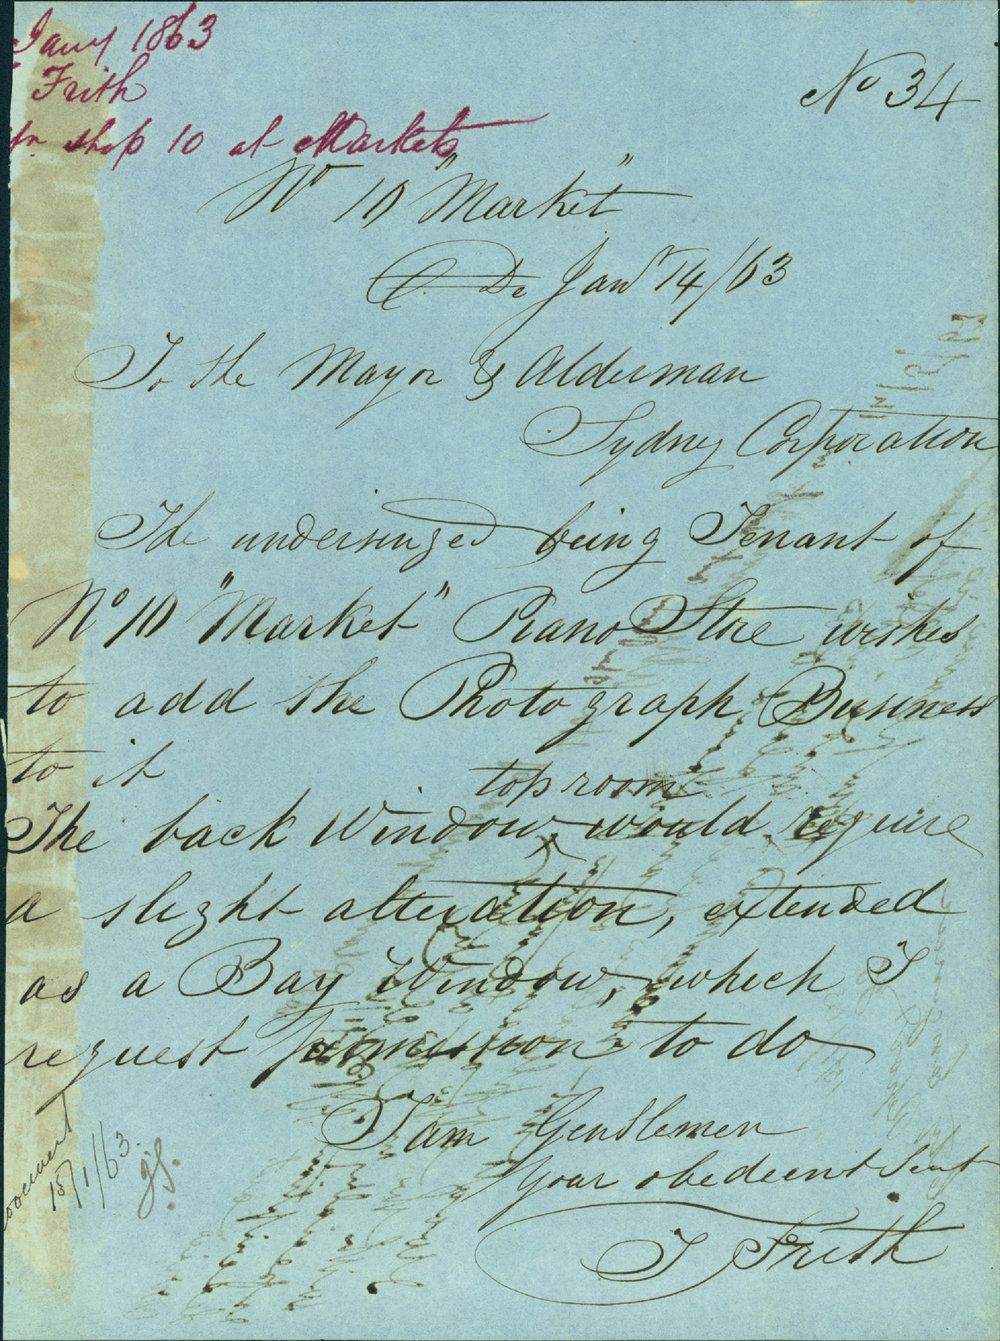 Jany 1863
Frith
shop 10 at Markets
No 34
No 10 "Market"
Do Jany 14/63
To the Mayor & Alderman
Sydney Corporation
The undersinged being Tenant of
No 10 "Market" Piano Store wishes
to add the Photograph Business
to it
top room
The back Window would require
a slight alteration, extended
as a Bay Window, which I
request permission to do
I am Gentlemen
Your obedeent Sevt
T Frith
15/1/63